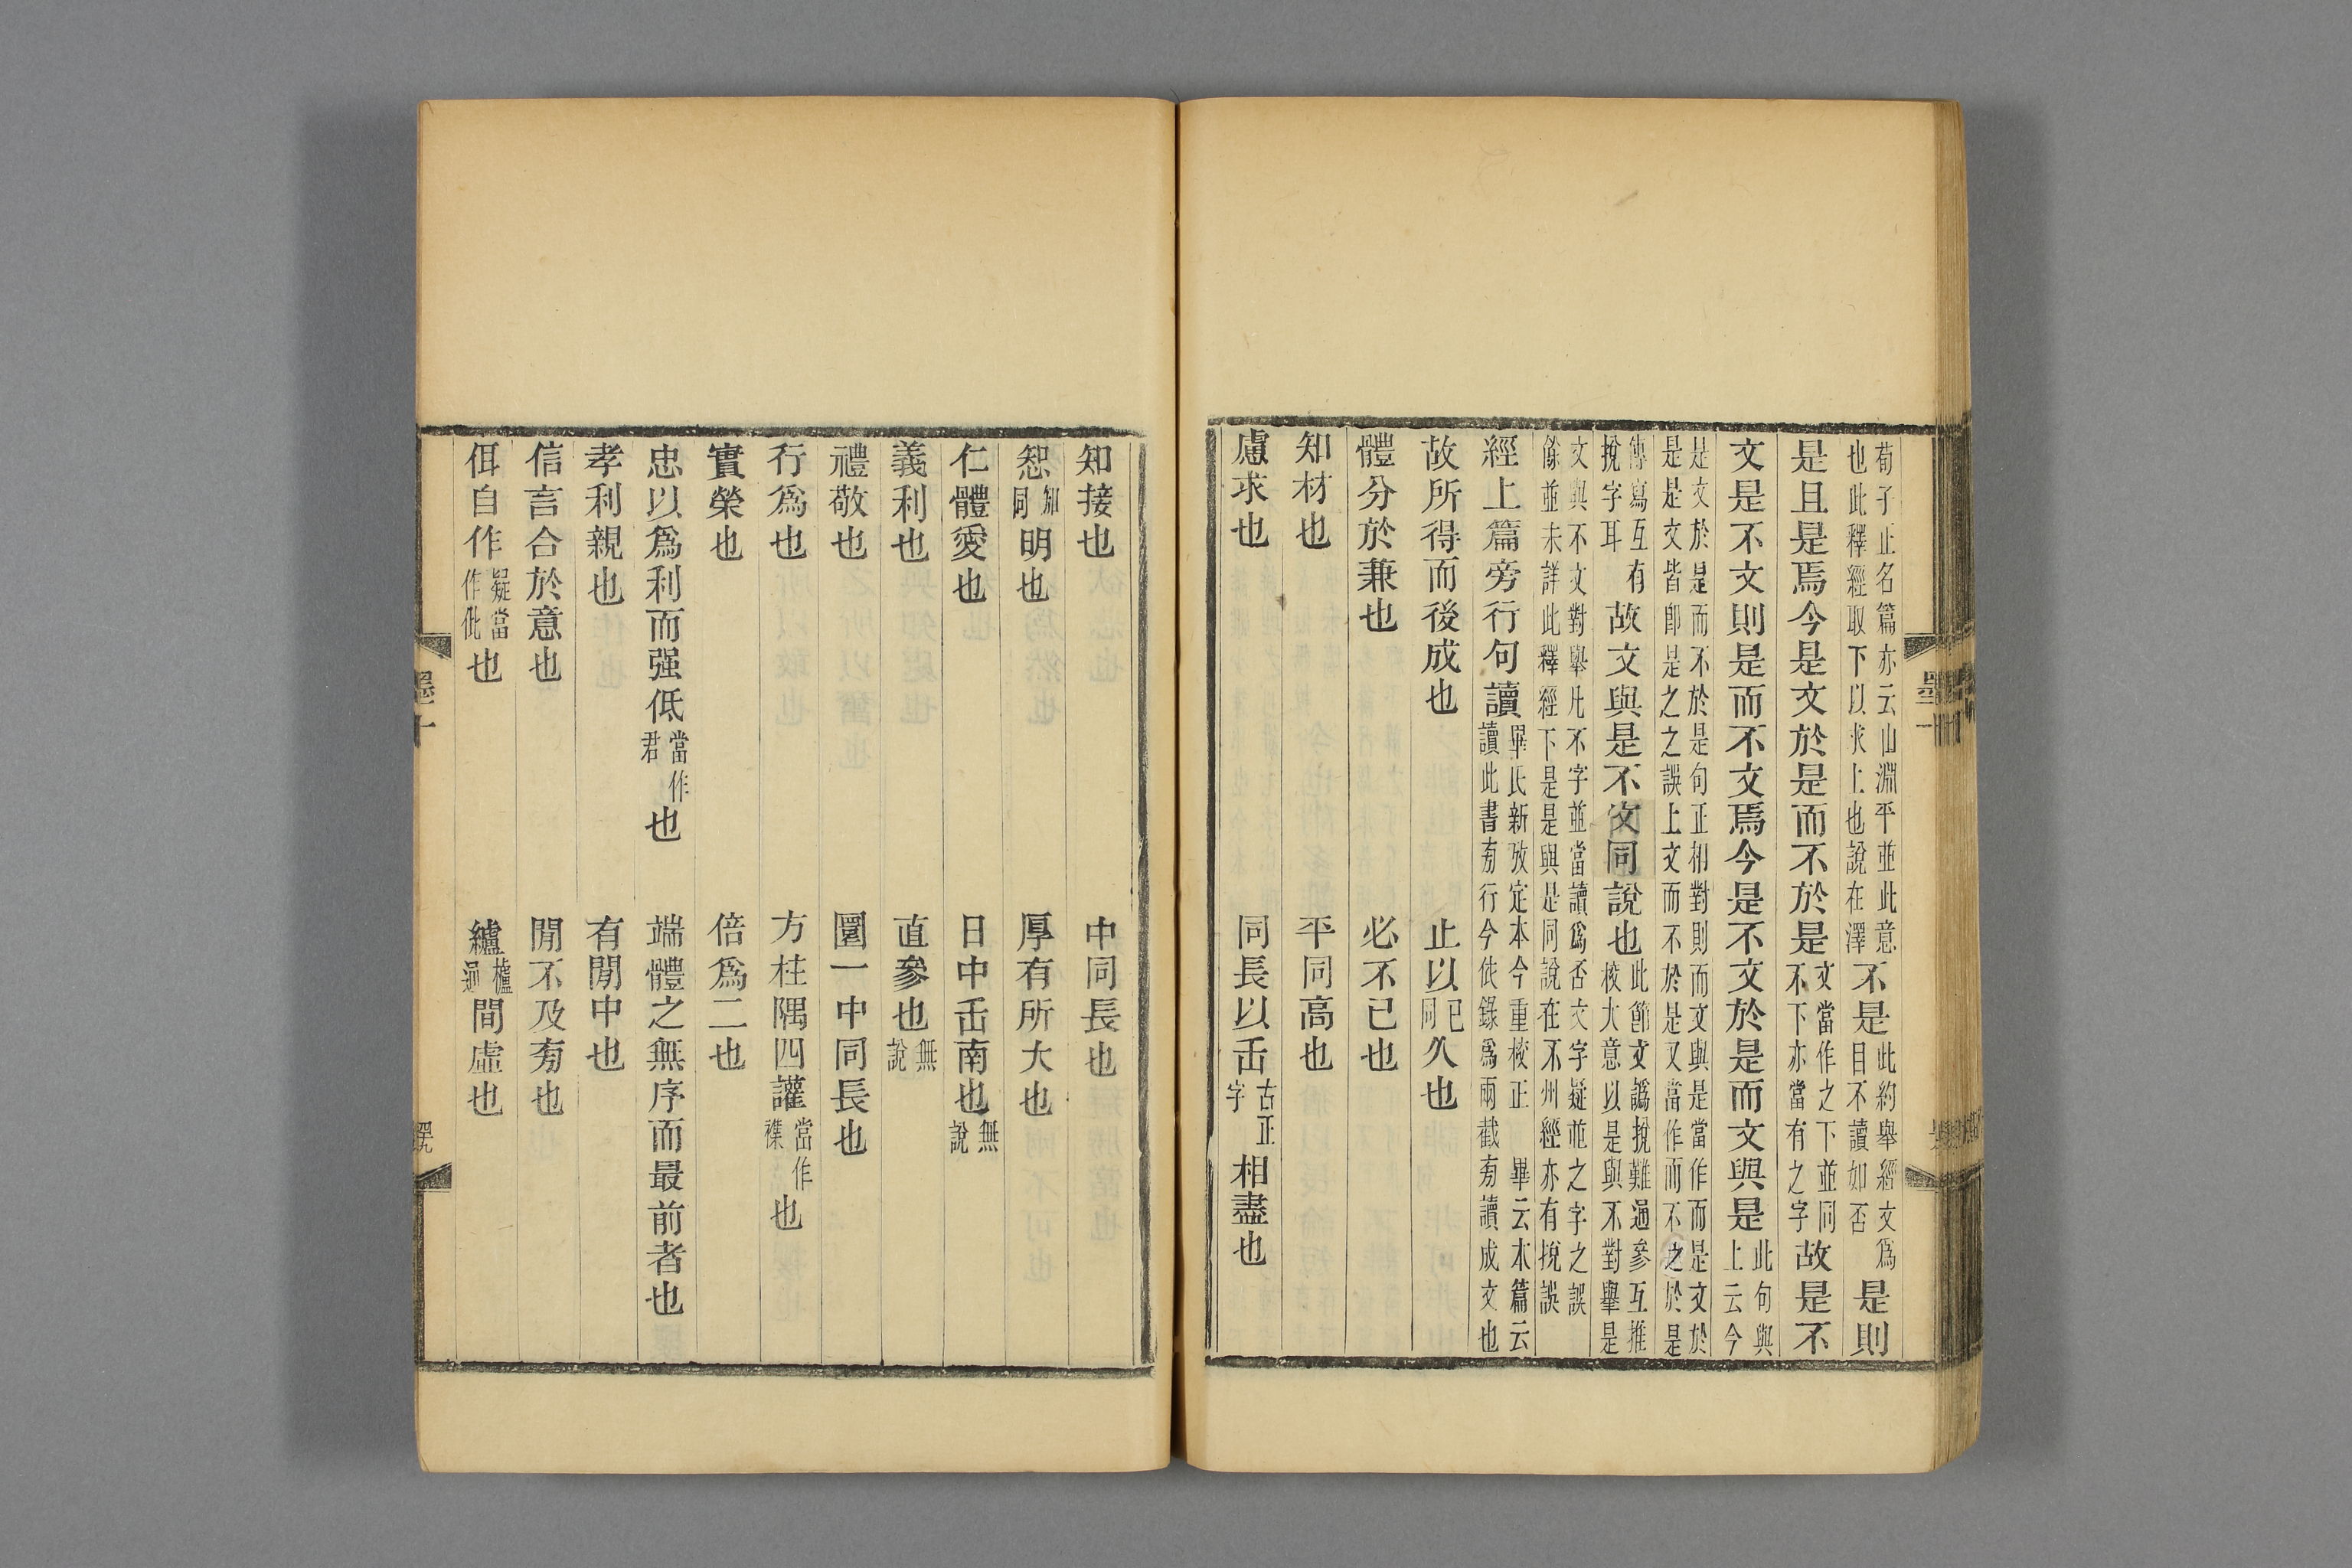 荀子正名篇亦云山淵平並此意
也此釋經取下以求上也說在澤不是此約舉經文爲
目不讀如否是則
是且是焉今是文於是而不於是文當作之下並同
不下亦當有之字故是不
文是不文則是而不文焉今是不文於是而文與是此句與
上云今
是文於是而不於是句正相對則而文與是當作而是文於
是是文皆卽是之之誤上文而不於是又當作而不之於是
傳寫互有
捝字耳故文與是不文同說也此節文譌捝難通參互推
校大意以是與不對舉是
文與不文對舉凡不字並當讀爲否文字疑並之字之誤
餘並未詳此釋經下是是與是同說在不州經亦有捝誤
經上篇旁行句讀畢氏新攷定本今重校正 畢云本篇云
讀此書旁行今依錄爲兩截旁讀成文也
故所得而後成也 止以已
同久也
體分於兼也 必不已也
知材也 平同高也
慮求也 同長以缶古正
字相盡也
知接也 中同長也
恕知
同明也 厚有所大也
仁體愛也 日中缶南也無
說
義利也 直參也無
說
禮敬也 圜一中同長也
行爲也 方柱隅四讙當作
襍也
實榮也 倍爲二也
忠以爲利而强低當作
君也 端體之無序而最前者也
孝利親也 有閒中也
信言合於意也 閒不及旁也
佴自作疑當
作仳也 纑櫨
通間虛也
墨十